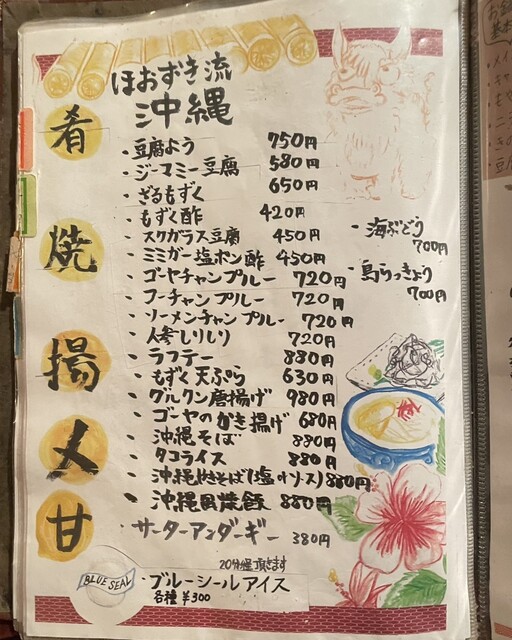 ほおずき流
沖縄
肴
・豆腐よう 750円
・ジーマミー豆腐 580円
・ざるもずく 650円
・もずく酢 420円
・スクガラス豆腐 450円
・ミミガー塩ポン酢 450円
・海ぶどう 700円
・島らっきょう 700円
焼
・ゴーヤチャンプルー 720円
・フーチャンプルー 720円
・ソーメンチャンプルー 720円
・人参しりしり 720円
・ラフテー 880円
揚
・もずく天ぷら 630円
・グルクン唐揚げ 980円
・ゴーヤのかき揚げ 680円
〆
・沖縄そば 880円
・タコライス 880円
・沖縄焼そば(塩orソース) 880円
・沖縄風炊飯 880円
甘
・サーターアンダーギー 380円
20分程頂きます
BLUE SEAL
・ブルーシールアイス
各種 ¥300